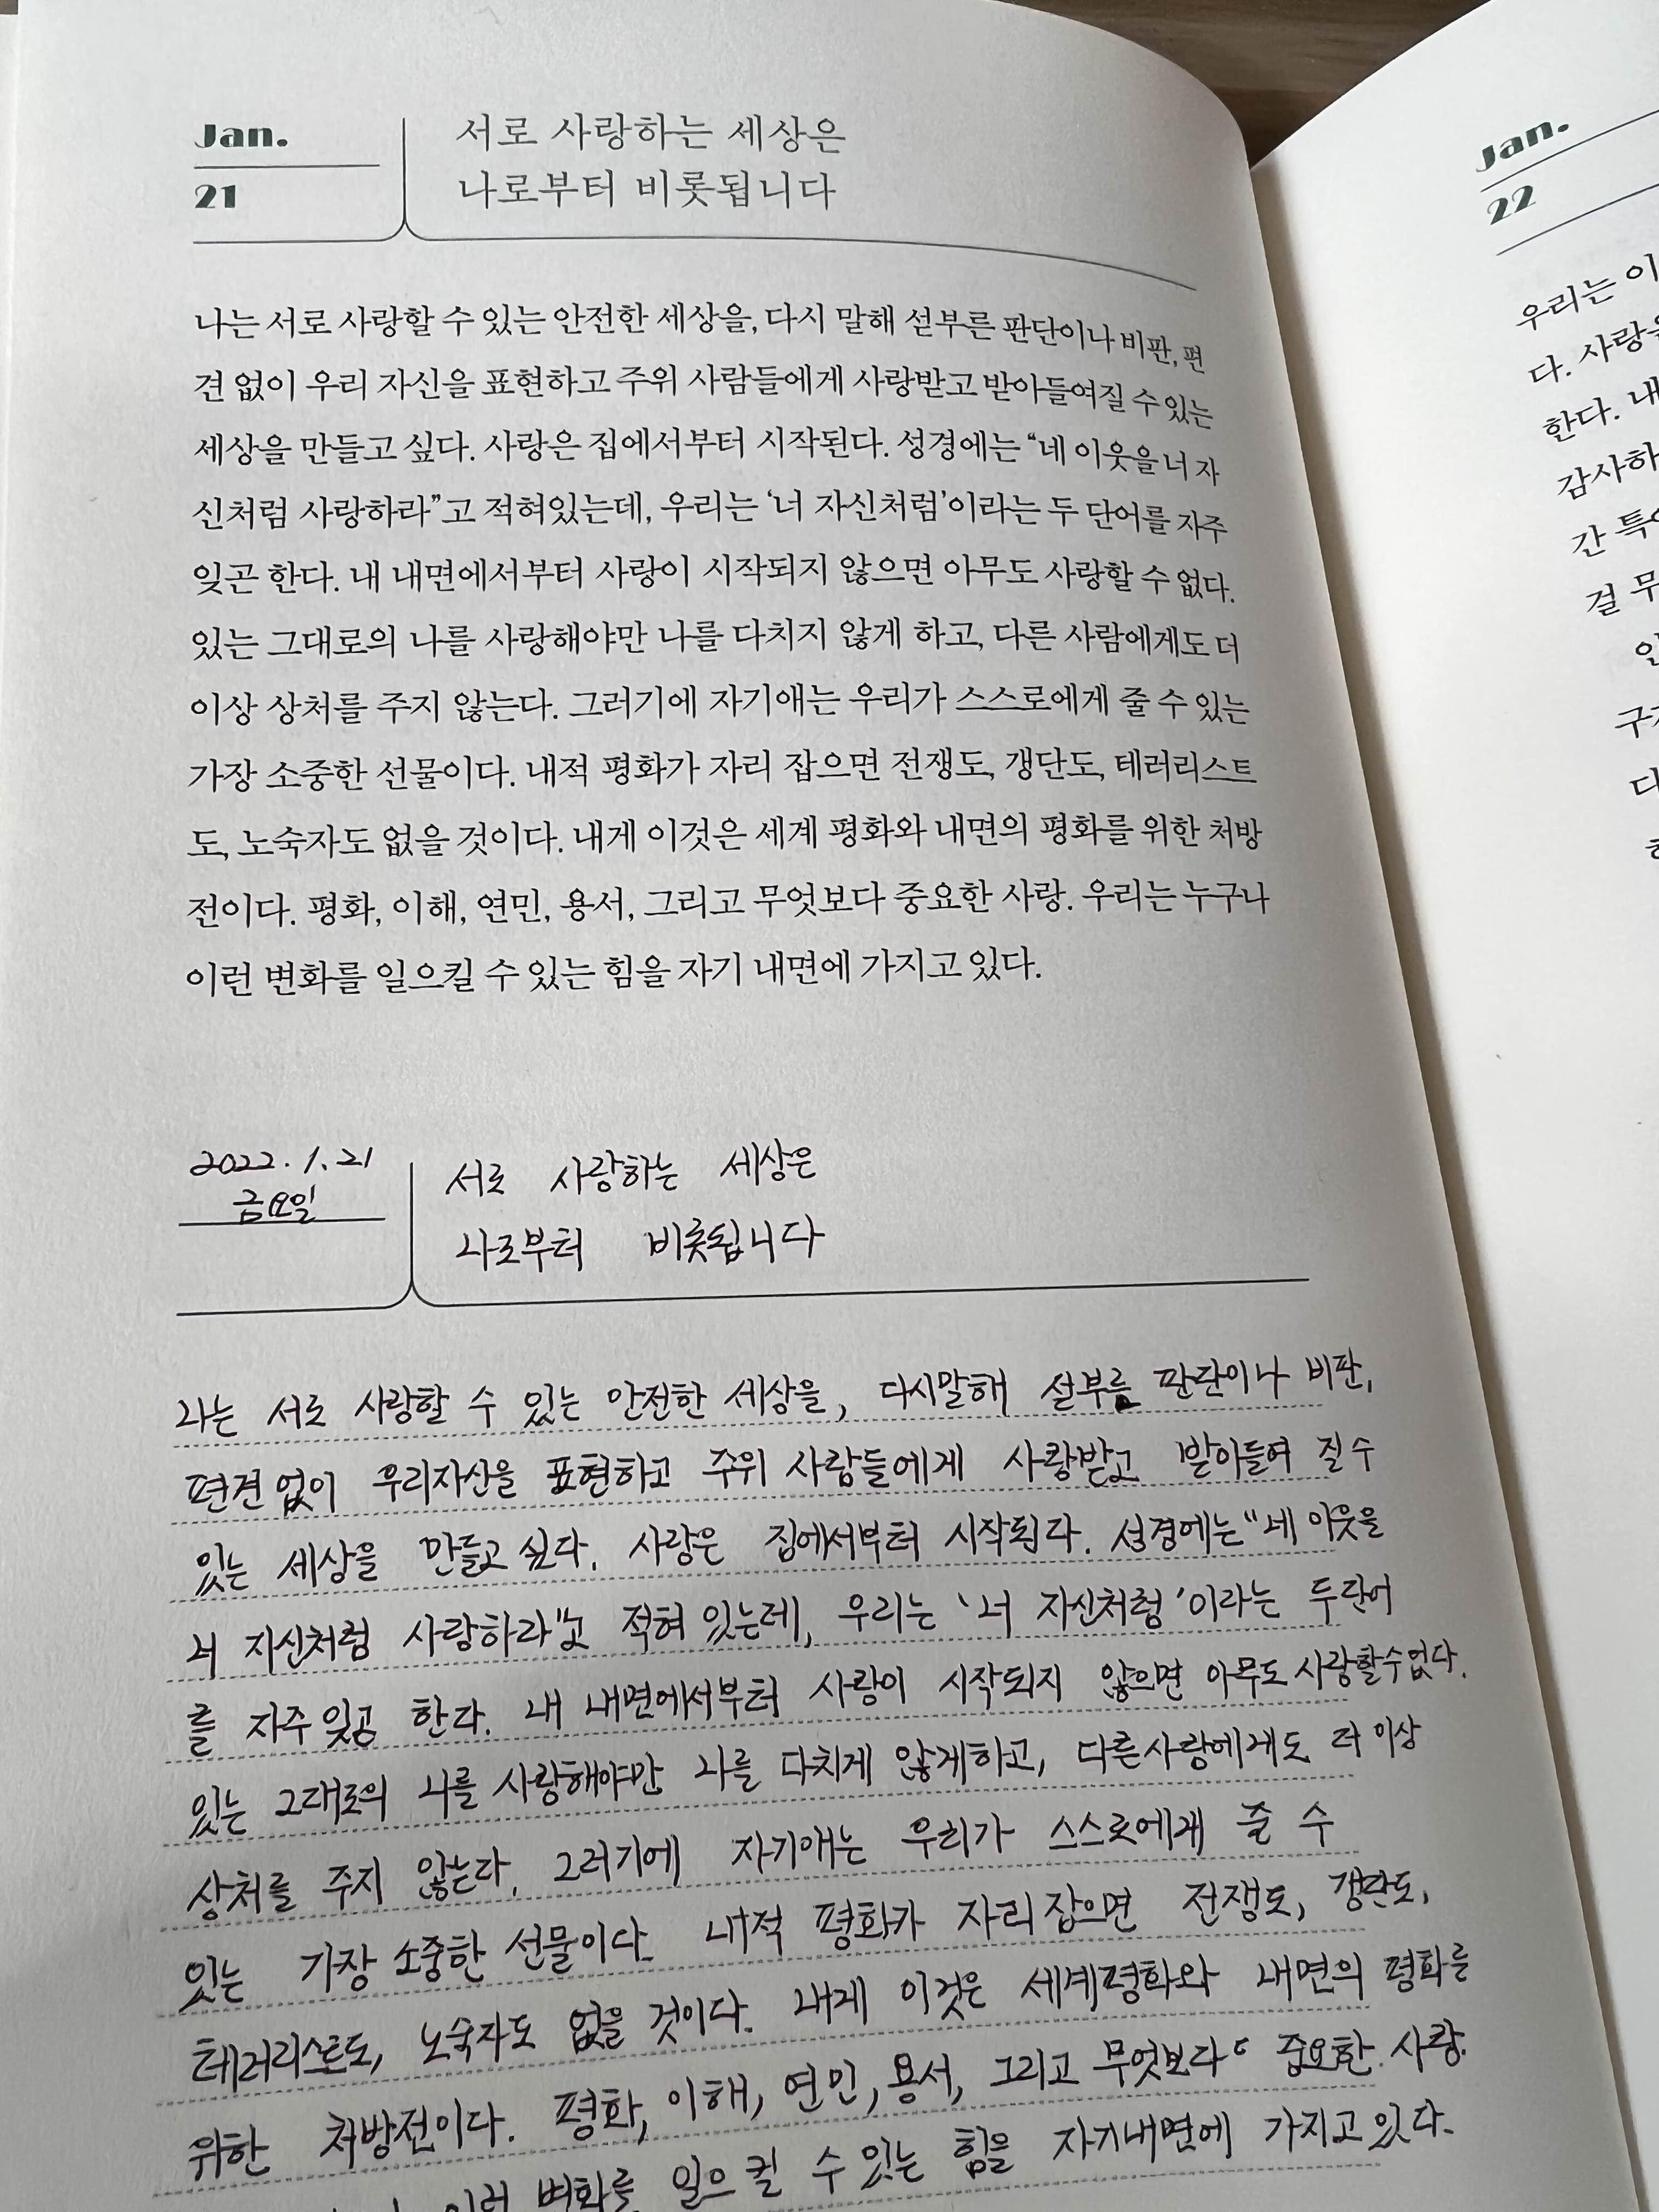 Jan.
21
서로 사랑하는 세상은
나로부터 비롯됩니다
나는 서로 사랑할 수 있는 안전한 세상을, 다시 말해 섣부른 판단이나 비판, 편
견 없이 우리 자신을 표현하고 주위 사람들에게 사랑받고 받아들여질 수 있는
세상을 만들고 싶다. 사랑은 집에서부터 시작된다. 성경에는 “네 이웃을 너 자
신처럼 사랑하라”고 적혀있는데, 우리는 ‘너 자신처럼’이라는 두 단어를 자주
잊곤 한다. 내 내면에서부터 사랑이 시작되지 않으면 아무도 사랑할 수 없다.
있는 그대로의 나를 사랑해야만 나를 다치지 않게 하고, 다른 사람에게도 더
이상 상처를 주지 않는다. 그러기에 자기애는 우리가 스스로에게 줄 수 있는
가장 소중한 선물이다. 내적 평화가 자리 잡으면 전쟁도, 갱단도, 테러리스트
도, 노숙자도 없을 것이다. 내게 이것은 세계 평화와 내면의 평화를 위한 처방
전이다. 평화, 이해, 연민, 용서, 그리고 무엇보다 중요한 사랑. 우리는 누구나
이런 변화를 일으킬 수 있는 힘을 자기 내면에 가지고 있다.
2022. 1. 21
금요일
서로 사랑하는 세상은
나로부터 비롯됩니다
나는 서로 사랑할 수 있는 안전한 세상을, 다시말해 섣부름 판단이나 비판,
편견 없이 우리자신을 표현하고 주위 사람들에게 사랑받고 받아들여 질 수
있는 세상을 만들고 싶다. 사랑은 집에서부터 시작된다. 성경에는 “네 이웃을
너 자신처럼 사랑하라”고 적혀 있는데, 우리는 ‘너 자신처럼’이라는 두 단어
를 자주 잊곤 한다. 내 내면에서부터 사랑이 시작되지 않으면 아무도 사랑할 수 없다.
있는 그대로의 나를 사랑해야만 나를 다치게 않게하고, 다른사람에게도 더 이상
상처를 주지 않는다. 그러기에 자기애는 우리가 스스로에게 줄 수
있는 가장 소중한 선물이다. 내적 평화가 자리 잡으면 전쟁도, 갱단도,
테러리스트도, 노숙자도 없을 것이다. 내게 이것은 세계평화와 내면의 평화를
위한 처방전이다. 평화, 이해, 연민, 용서, 그리고 무엇보다 중요한 사랑.
이런 변화를 일으킬 수 있는 힘을 자기내면에 가지고 있다.
Jan.
22
우리는 이
한다. 내
감사하